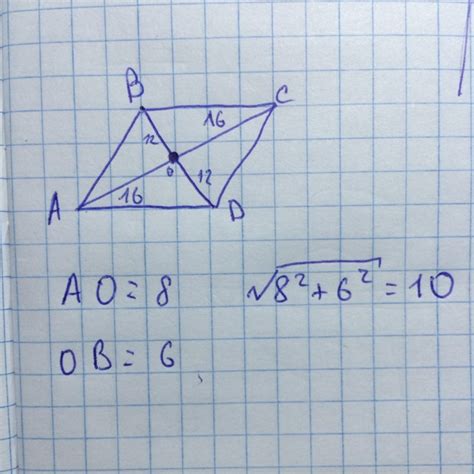 B
C
12
16
O
12
16
A
D
AO = 8
√8² + 6² = 10
OB = 6